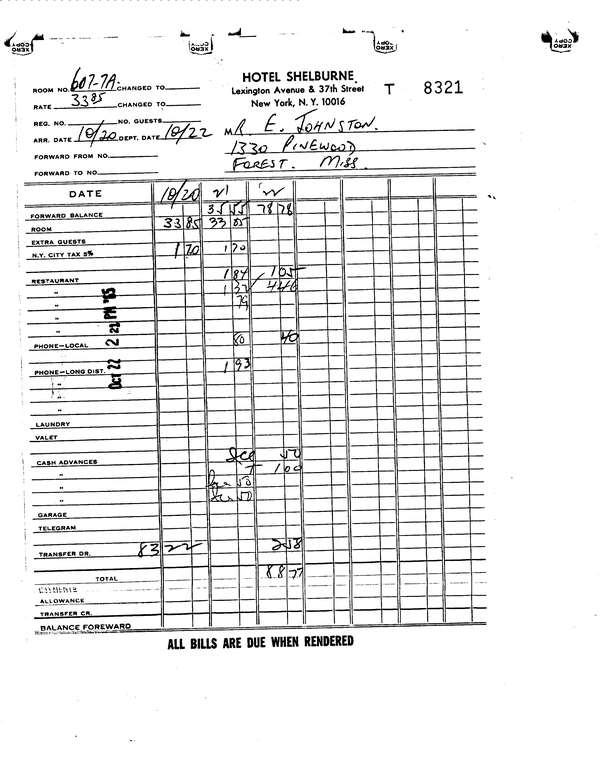 XERO COPY XERO COPY XERO COPY XERO COPY
HOTEL SHELBURNE
Lexington Avenue & 37th Street
New York, N. Y. 10016
T 8321
ROOM NO. 607-7A CHANGED TO
RATE 3385 CHANGED TO
REG. NO. NO. GUESTS
ARR. DATE 10/20 DEPT. DATE 10/22
FORWARD FROM NO.
FORWARD TO NO.
MR. E. JOHNSTON.
1330 PINEWOOD
FOREST. MISS.
DATE 10/20 21 22
FORWARD BALANCE 35 55 78 78
ROOM 33 85 33 85
EXTRA GUESTS
N.Y. CITY TAX 5% 1 70 1 70
RESTAURANT 1 84 1 05
" 1 32 4 46
" 79
"
PHONE—LOCAL 80 40
PHONE—LONG DIST. 1 93
"
"
"
OCT 22 2 21 PM '65
LAUNDRY
VALET
CASH ADVANCES 50
" T 1 00
" 50
" 50
GARAGE
TELEGRAM
TRANSFER DR. 8322 2 58
TOTAL 88 77
PAYMENTS
ALLOWANCE
TRANSFER CR.
BALANCE FOREWARD
ALL BILLS ARE DUE WHEN RENDERED